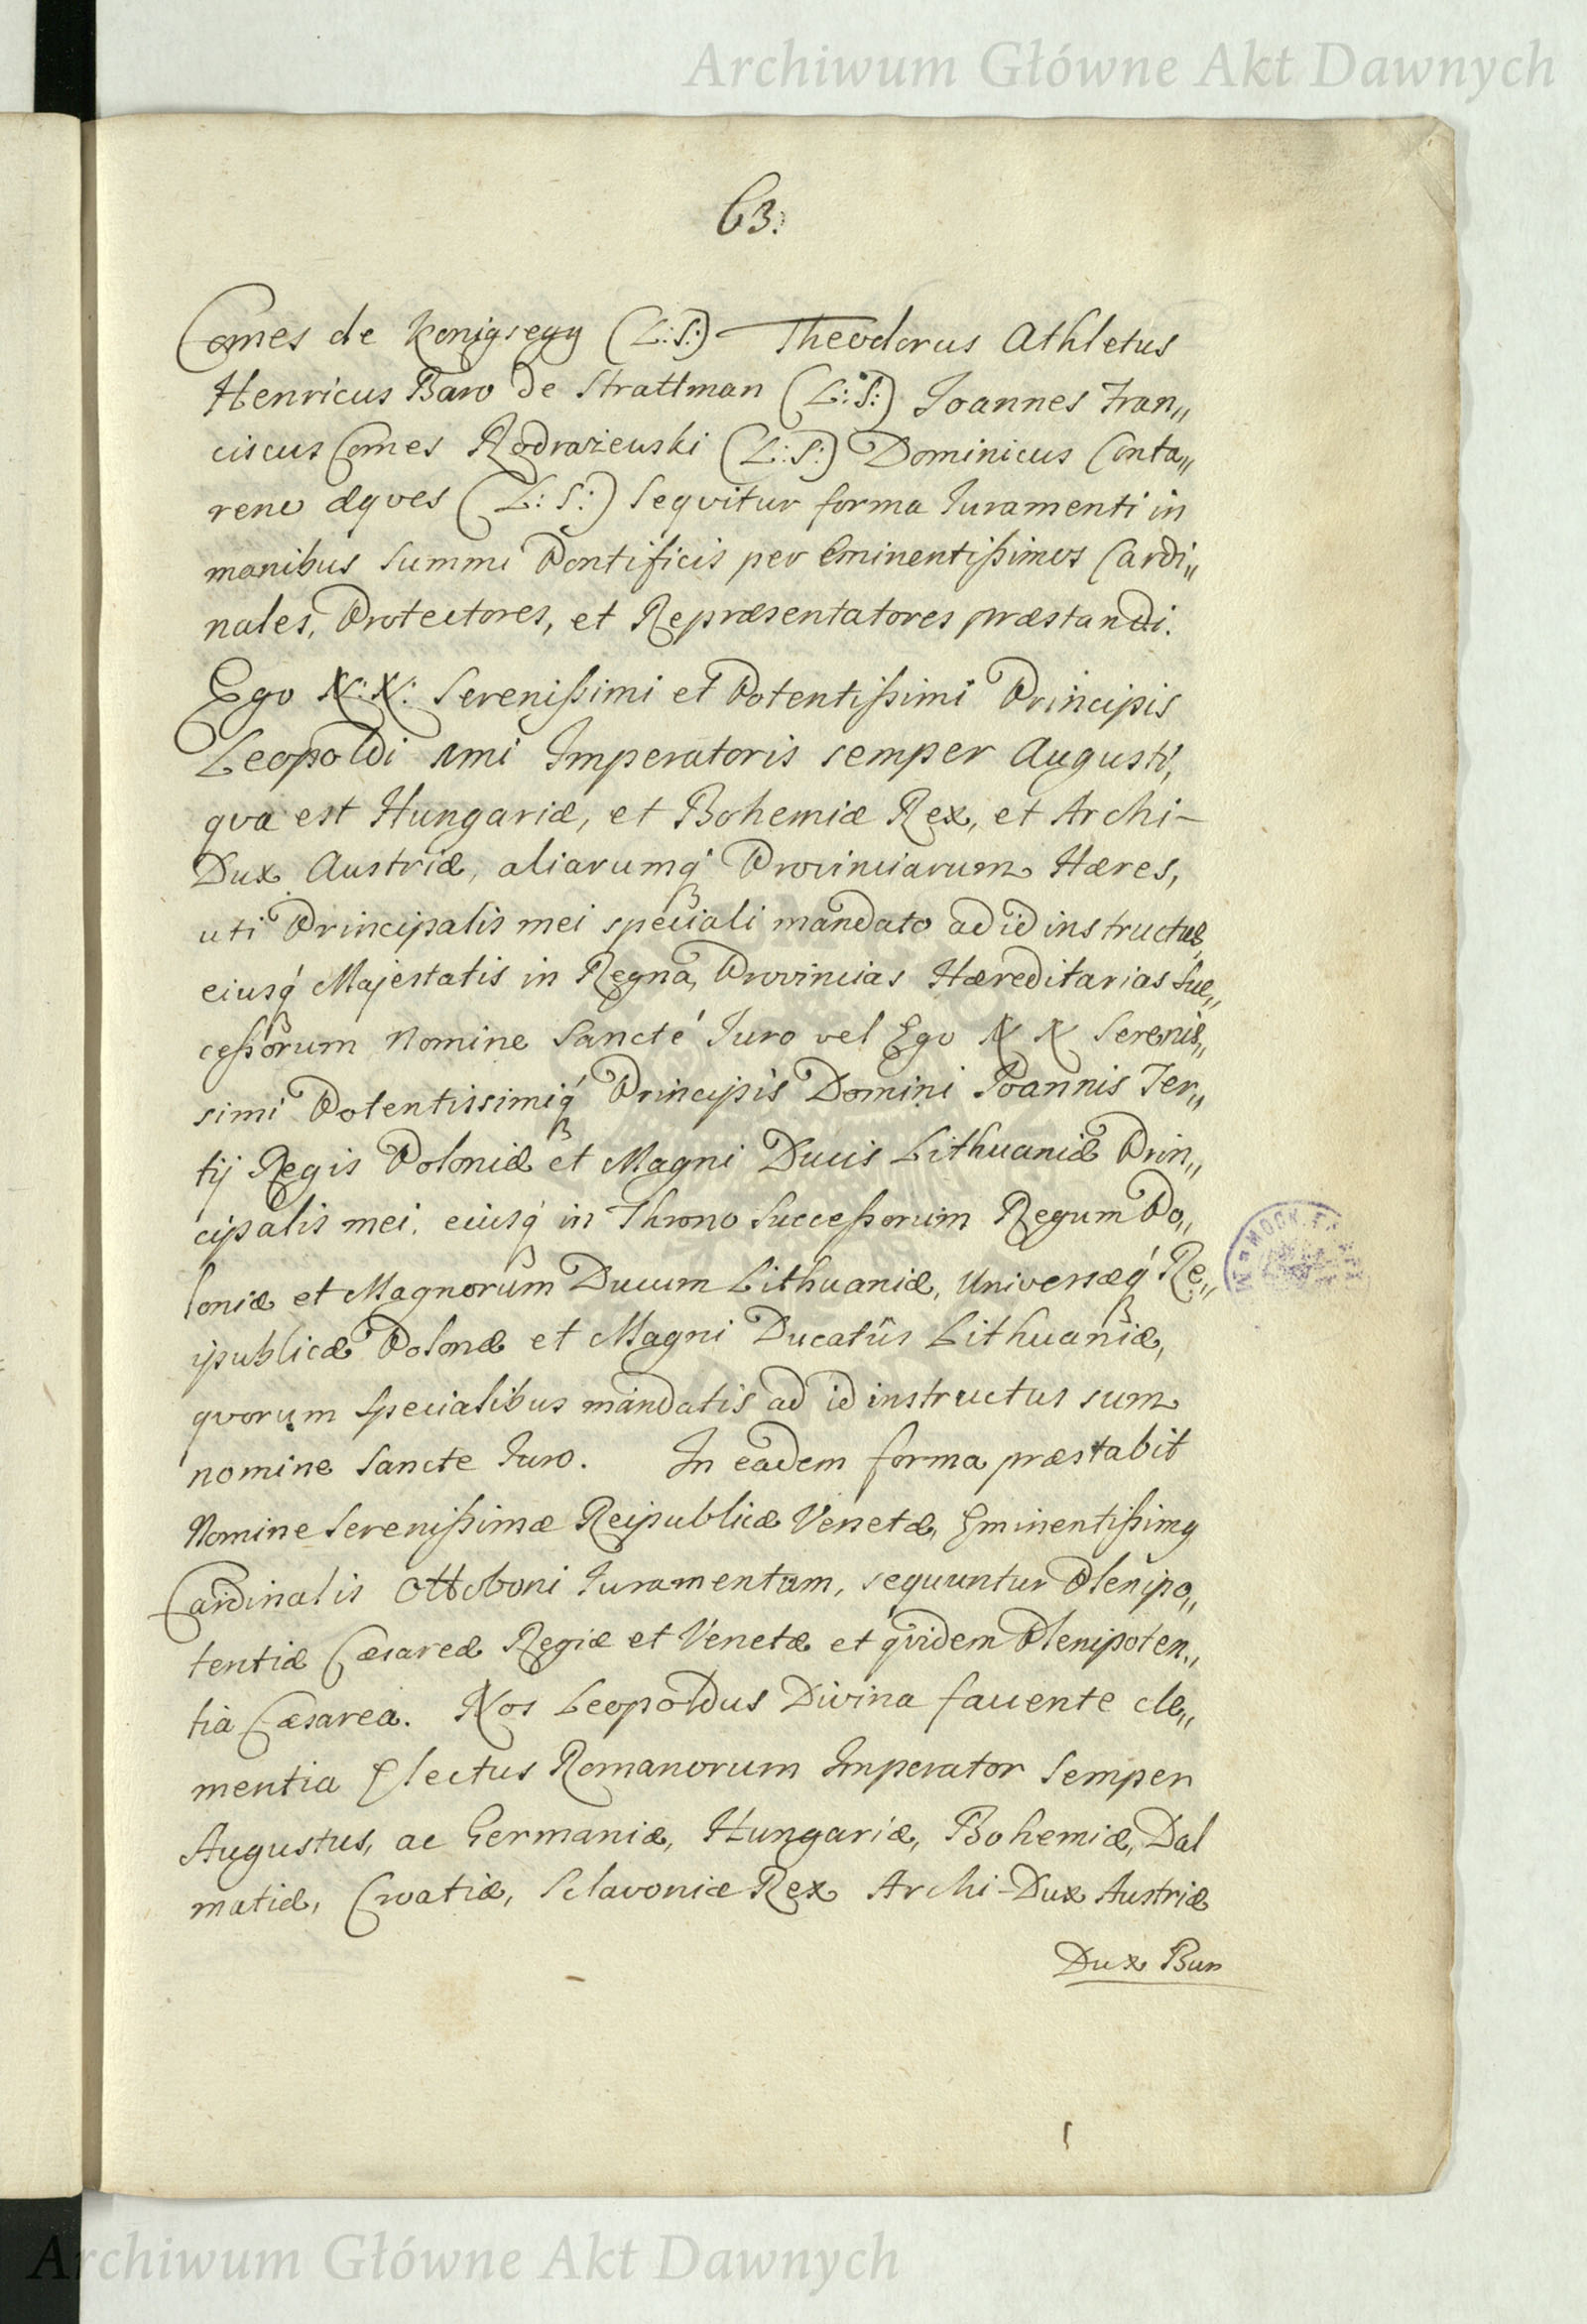 Archiwum Główne Akt Dawnych
63.
Comes de Konigsegg (L:S:) Theodorus Athletus
Henricus Baro de Strattman (L:S:) Joannes Fran„
ciscus Comes Rodrażeuski (L:S:) Dominicus Conta„
reno æqves (L:S:) Seqvitur forma Iuramenti in
manibus Summi Pontificis per Eminentißimos Cardi„
nales, Protectores, et Repræsentatores præstandi.
Ego N:N: Serenißimi et Potentißimi Principis
Leopoldi 1mi Imperatoris semper Augusti,
qva est Hungariæ, et Bohemiæ Rex, et Archi-
Dux Austriæ, aliarumq́ Provinciarum Hæres,
uti Principalis mei speciali mandato ad id instructus,
eiusq́ Majestatis in Regna, Provincias Hæreditarias Suc„
ceßorum Nomine Sancté Iuro vel Ego N N Serenis„
simi Potentissimiq́ Principis Domini Joannis Ter„
tij Regis Poloniæ et Magni Ducis Lithuaniæ Prin„
cipalis mei, eiusq́ in Throno Succeßorum Regum Po„
loniæ et Magnorum Ducum Lithuaniæ, Universæq́ Re„
ipublicæ Polonæ et Magni Ducatûs Lithuaniæ,
qvorum Specialibus mandatis ad id instructus sum
nomine Sancte Iuro. In eadem forma præstabit
Nomine Serenißimæ Reipublicæ Venetæ, Eminentißimq
Cardinalis Ottoboni Iuramentum, sequuntur Plenipo„
tentiæ Cæsareæ Regiæ et Venetæ et qvidem Plenipoten„
tia Cæsarea. Nos Leopoldus Divina fauente cle„
mentia Electus Romanorum Imperator Semper
Augustus, ac Germaniæ, Hungariæ, Bohemiæ, Dal
matiæ, Croatiæ, Sclavoniæ Rex Archi-Dux Austriæ
Dux Bur
Archiwum Główne Akt Dawnych